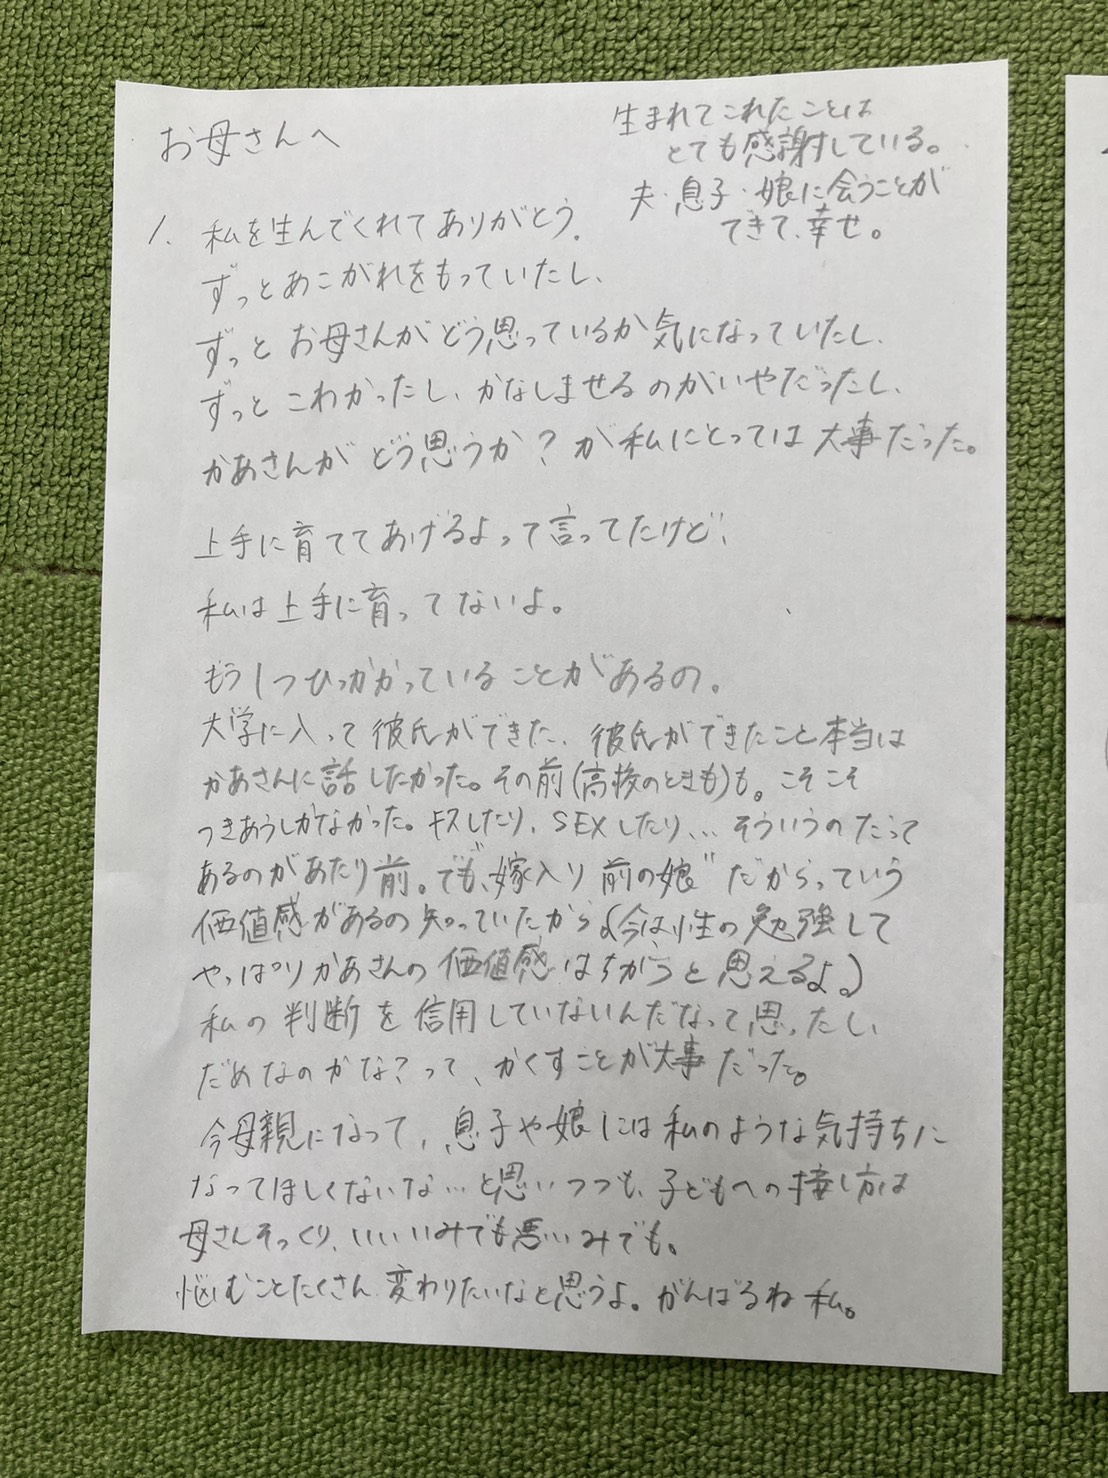 お母さんへ
生まれてこれたことは
とても感謝している。
夫・息子・娘に会うことが
できて、幸せ。
1. 私を生んでくれてありがとう。
ずっとあこがれをもっていたし、
ずっとお母さんがどう思っているか気になっていたし、
ずっとこわかったし、かなしませるのがいやだったし、
かあさんがどう思うか?が私にとっては大事だった。
上手に育ててあげるよって言ってたけど、
私は上手に育ってないよ。
もう1つひっかかっていることがあるの。
大学に入って彼氏ができた、彼氏ができたこと本当は
かあさんに話したかった。その前(高校のときも)も。こそこそ
つきあうしかなかった。キスしたり、SEXしたり...そういうのだって
あるのがあたり前。でも、"嫁入り前の娘"だからっていう
価値感があるの知っていたから(今は、性の勉強して
やっぱりかあさんの価値感はちがうと思えるよ。)
私の判断を信用していないんだなって思ったし、
だめなのかな?って、かくすことが大事だった。
今母親になって、息子や娘には私のような気持ちに
なってほしくないな...と思いつつも、子どもへの接し方は
母さんそっくり、いいいみでも悪いいみでも。
悩むことたくさん。変わりたいなと思うよ。がんばるね私。